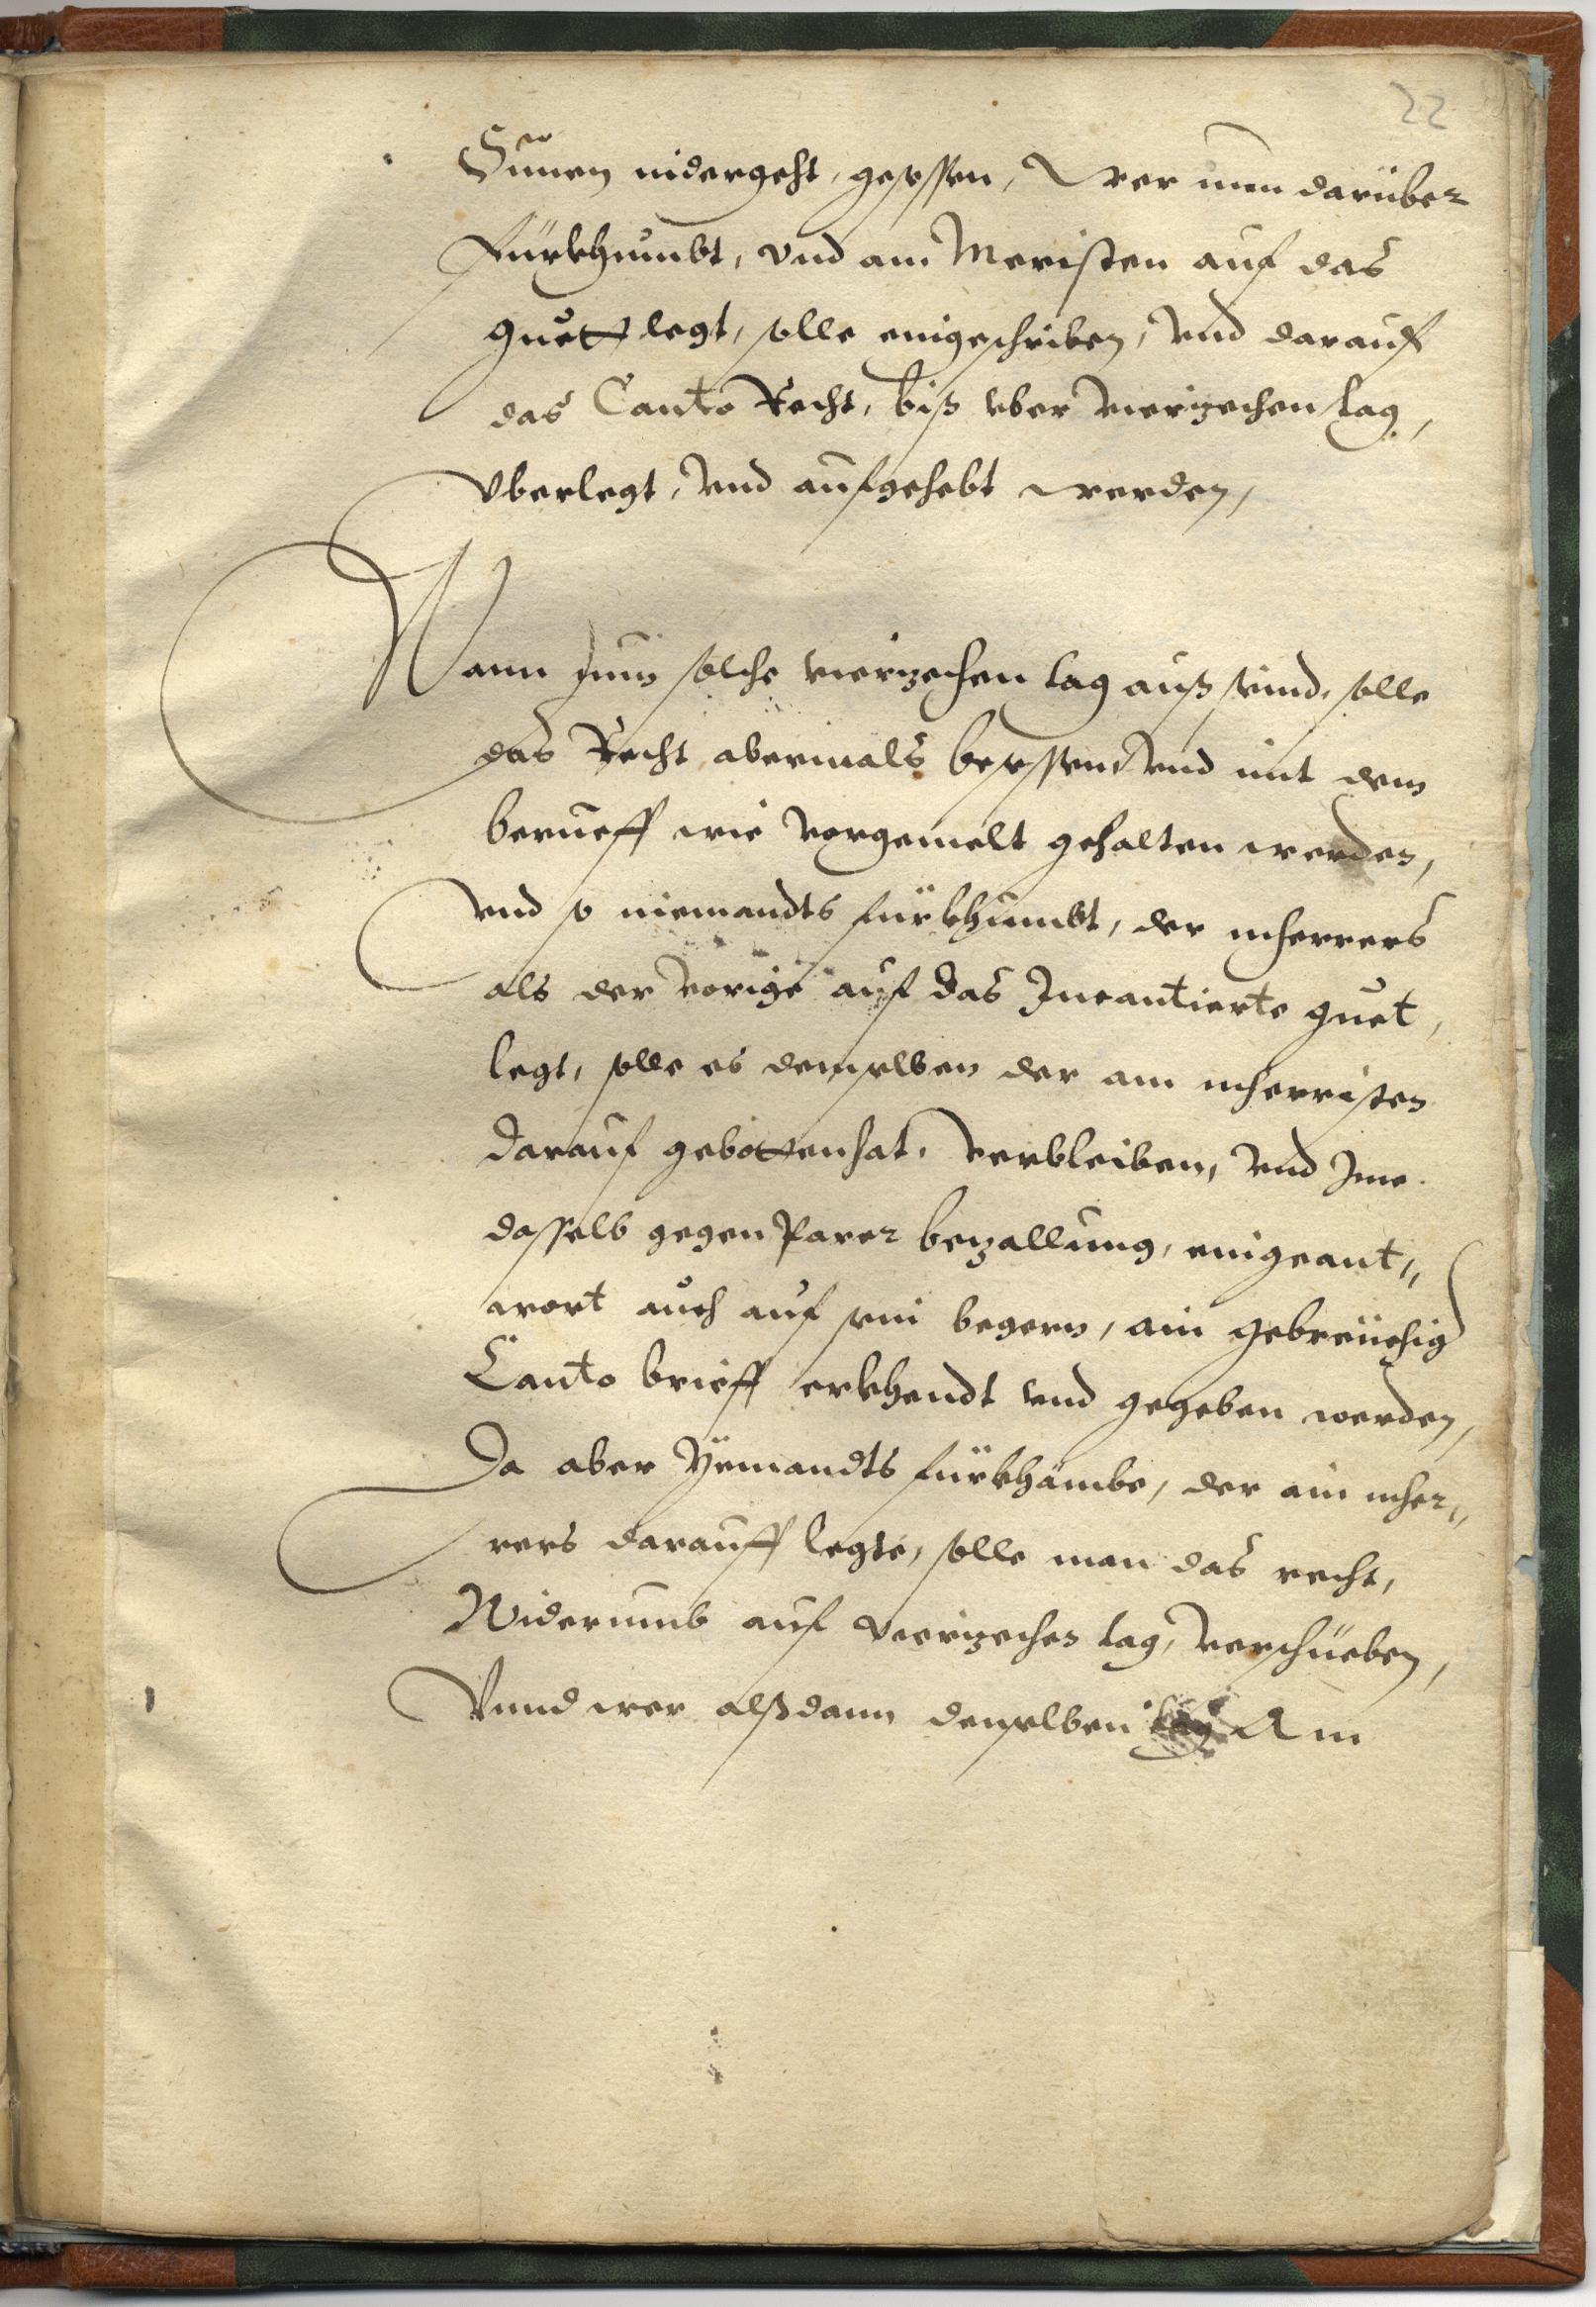 22
Sunen nidergeht, gesessen, Wer nun darüber
fürkhumbt, vnd am Meristen auf das
guett legt, solle eingeschriben, vnd darauf
das Canto Recht, biß vber vierzechen tag,
vberlegt, vnd aufgehebt werden,
Wann nun solche vierzechen tag auß seind, solle
das Recht abermals besessen, vnd mit dem
berueff wie vorgemelt gehalten werden,
vnd so niemandts fürkhumbt, der mherrers
als der vorige auf das Incantierte guet,
legt, solle es demselben der am mherristen
darauf gebotten hat, verbleiben, vnd Ime
dasselb gegen Parer bezallung, eingeant„
wort auch auf sein begern, ain gebreuchig
Canto brieff erkhendt vnd gegeben werden,
Da aber Yemandts fürkhämbe, der ain mher„
rers darauff legte, solle man das recht,
Widerumb auf vierzechen tag, verschueben,
Vnnd wer alßdann denselben tag Am